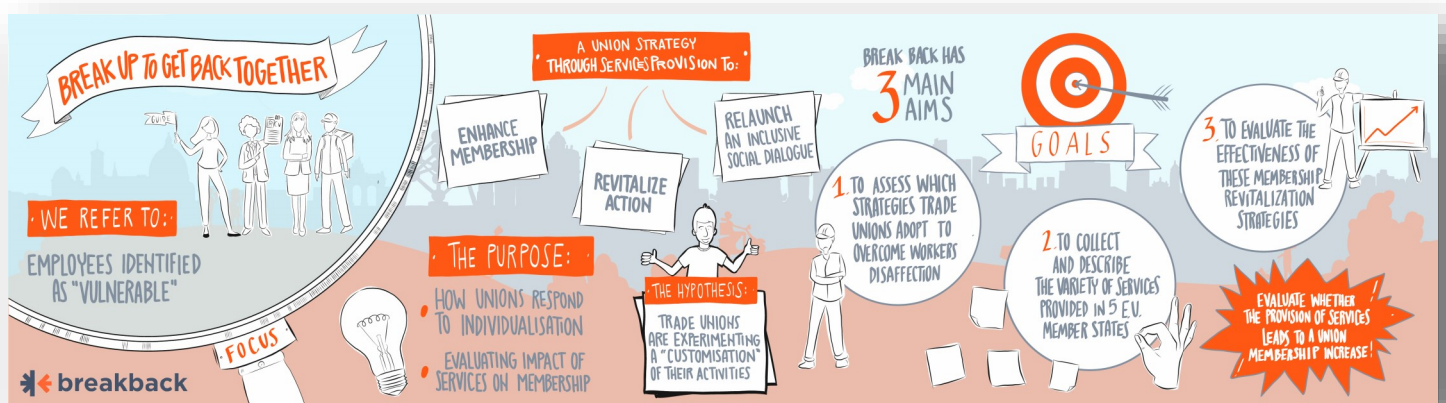 BREAK UP TO GET BACK TOGETHER
GUIDE
· WE REFER TO: ·
EMPLOYEES IDENTIFIED
AS "VULNERABLE"
FOCUS
breakback
A UNION STRATEGY
THROUGH SERVICES PROVISION TO:
ENHANCE
MEMBERSHIP
REVITALIZE
ACTION
RELAUNCH
AN INCLUSIVE
SOCIAL DIALOGUE
· THE PURPOSE: ·
• HOW UNIONS RESPOND
TO INDIVIDUALISATION
• EVALUATING IMPACT OF
SERVICES ON MEMBERSHIP
· THE HYPOTHESIS: ·
TRADE UNIONS
ARE EXPERIMENTING
A "CUSTOMISATION"
OF THEIR ACTIVITIES
BREAK BACK HAS
3 MAIN
AIMS
GOALS
1. TO ASSESS WHICH
STRATEGIES TRADE
UNIONS ADOPT TO
OVERCOME WORKERS
DISAFFECTION
2. TO COLLECT
AND DESCRIBE
THE VARIETY OF SERVICES
PROVIDED IN 5 E.U.
MEMBER STATES
3. TO EVALUATE THE
EFFECTIVENESS OF
THESE MEMBERSHIP
REVITALIZATION
STRATEGIES
EVALUATE WHETHER
THE PROVISION OF SERVICES
LEADS TO A UNION
MEMBERSHIP INCREASE!